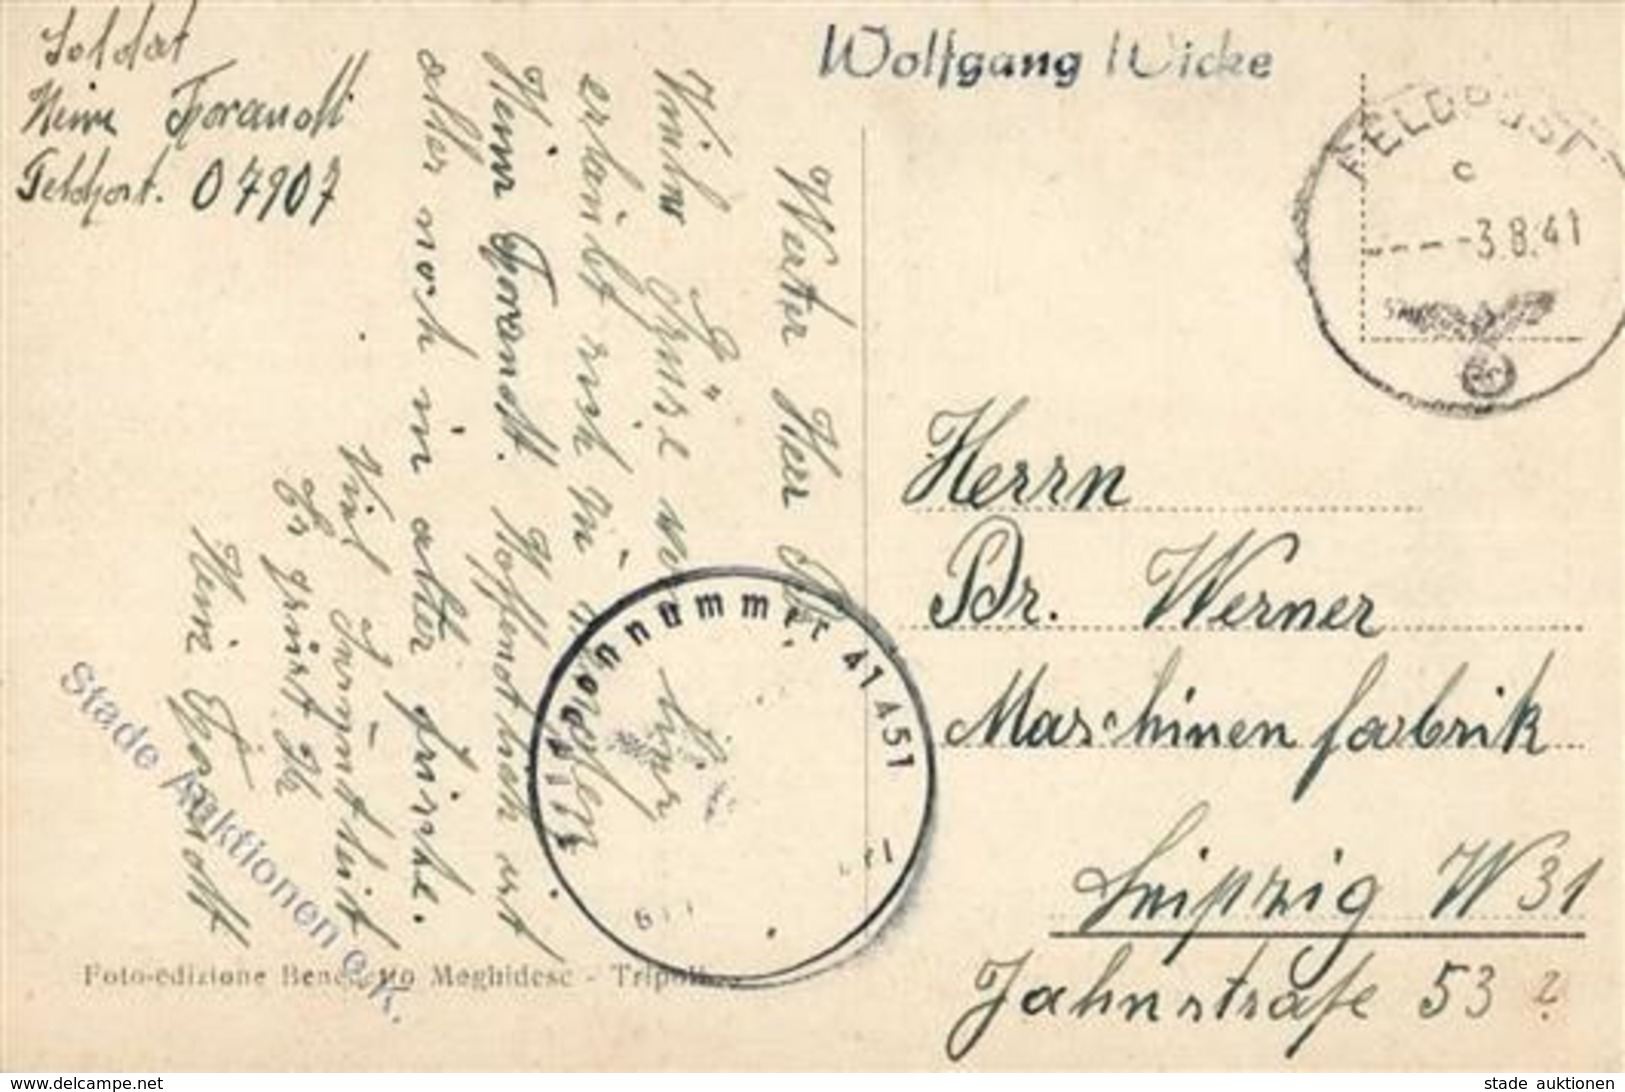 Soldat
Heinz Thorandt
Feldpost. 07907
Wolfgang Wicke
FELDPOST
c
-3.8.41
Werter Herr Dr.
Grüße
erlaubt sich zu
Heinz Thorandt. Hoffentlich ist
alles noch in alter frische.
Viel
Es grüßt Sie
Heinz Thorandt
41451
Herrn
Dr. Werner
Maschinenfabrik
Leipzig W 31
Jahnstraße 53 ?
Foto-edizione Benedetto Meghidesc - Tripoli
Stade Auktionen e.K.
delcampe.net
stade auktionen